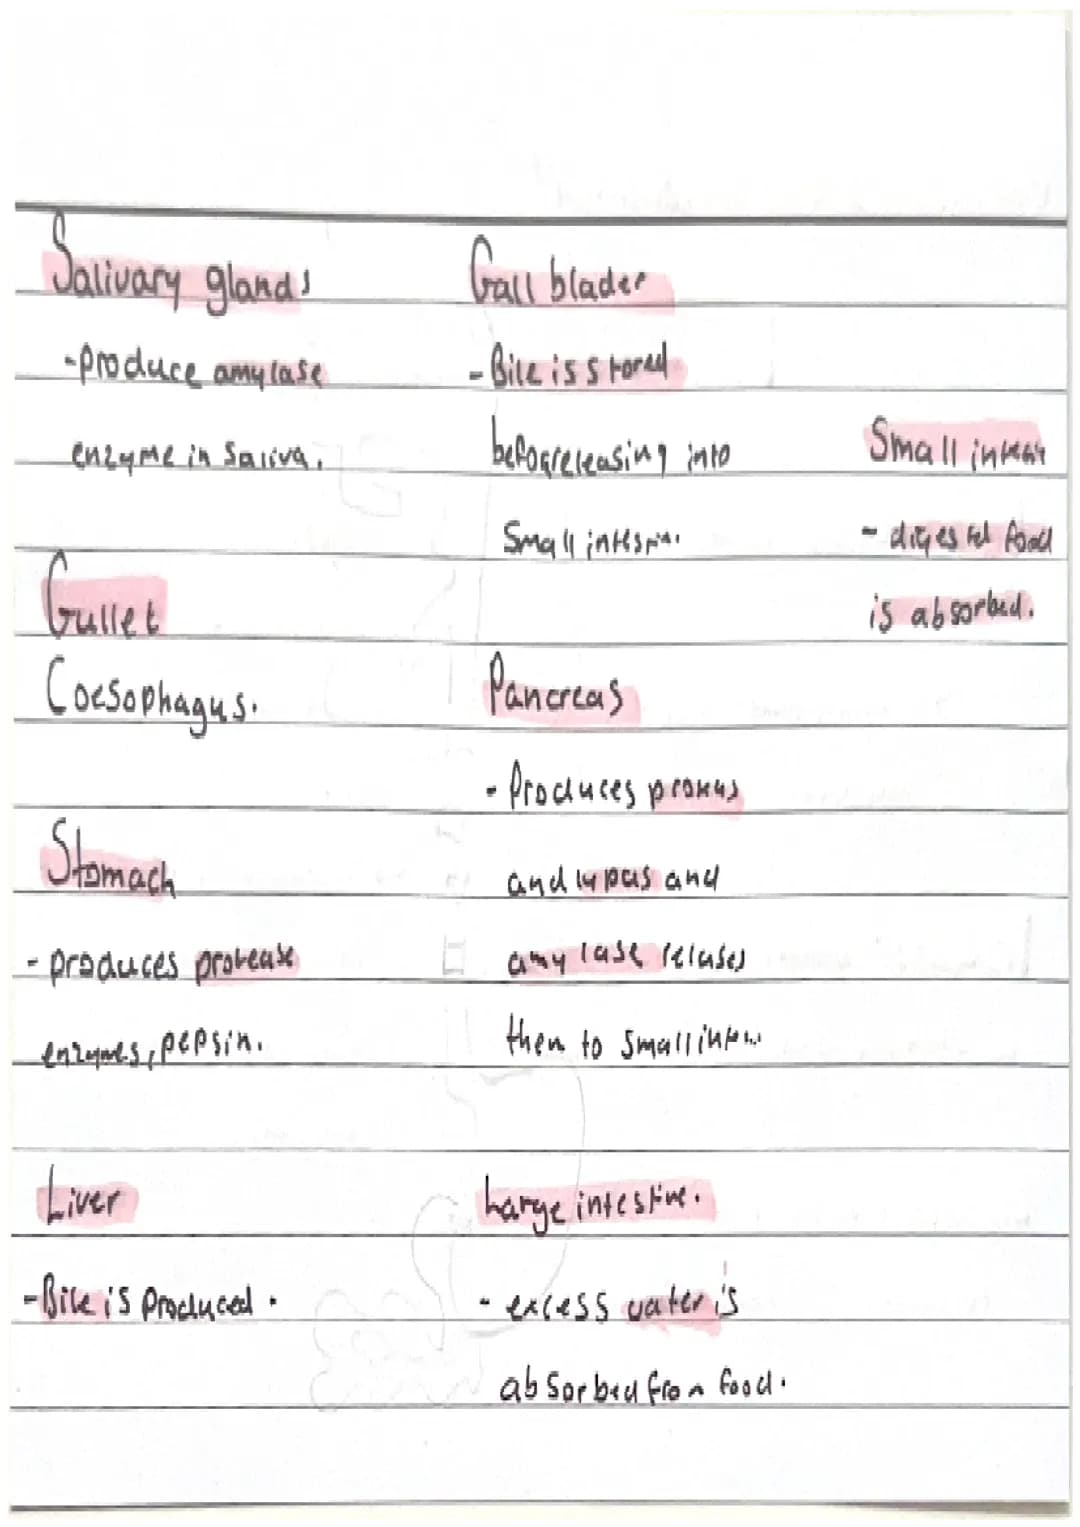 Salivary glands
-Produce amylase
enzyme in saliva.
Gullet
Coesophagus.
Stomach
- produces protease
enzymes, pepsin.
Liver
-Bile is Produced.
Gall blader
- Bile is stored
before releasing into
Small
Pancreas
- Produces
and and
amylase releases
then to small
Large intestine.
- excess water is
absorbed from food.
Small
- digested food
is absorbed.